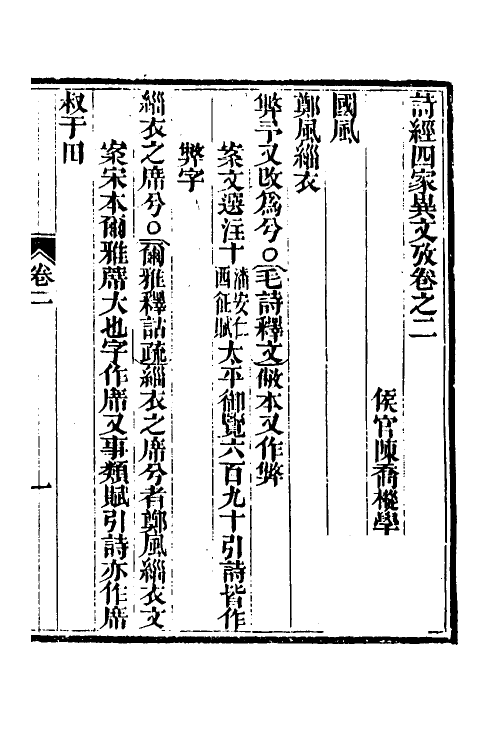 詩經四家異文攷卷之二
侯官陳喬樅學
國風
鄭風緇衣
弊予又改爲兮○毛詩釋文敝本又作弊
案文選注十潘安仁西征賦太平御覽六百九十引詩皆作
弊字
緇衣之席兮○爾雅釋詁疏緇衣之席兮者鄭風緇衣文
案宋本爾雅蓆大也字作席又事類賦引詩亦作席
叔于田
卷二
一